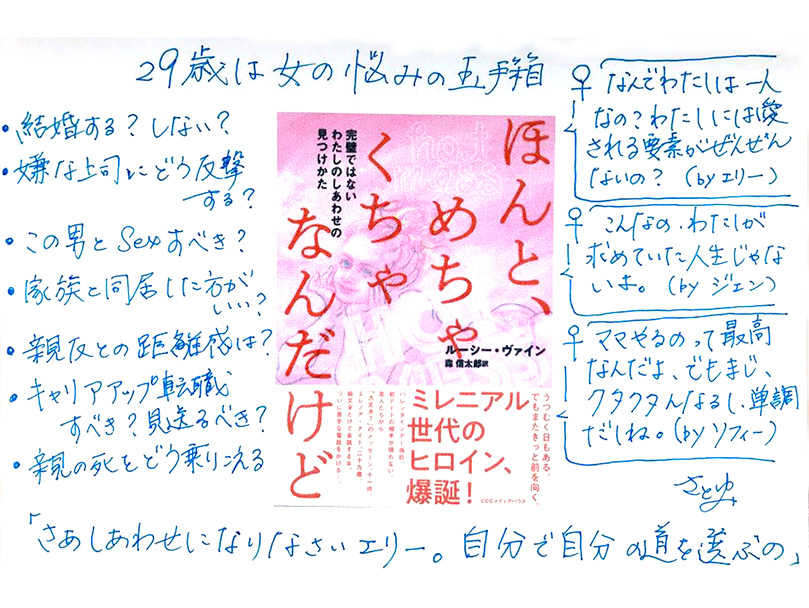 29歳は女の悩みの玉手箱
・結婚する？しない？
・嫌な上司にどう反撃
する？
・この男とSexすべき？
・家族と同居した方が
いい？
・親友との距離感は？
・キャリアアップ転職
すべき？見送るべき？
・親の死をどう乗りこえる
ほんと、
めちゃ
くちゃ
なんだけど
完璧ではない
わたしのしあわせの
見つけかた
hot
mess
ルーシー・ヴァイン
森 信太郎訳
うつむく日もある。
でもまたきっと前を向く。
ミレニアル
世代の
ヒロイン、
爆誕！
CCCメディアハウス
♀ なんでわたしは一人
なの？わたしには愛
される要素がぜんぜん
ないの？（byエリー）
♀ こんなの、わたしが
求めていた人生じゃな
いよ。（by ジェン）
♀ ママやるのって最高
なんだよ、でもまじ、
クタクタんなるし、単調
だしね。（by ソフィー）
さとゆみ
「さあしあわせになりなさいエリー。自分で自分の道を選ぶの」